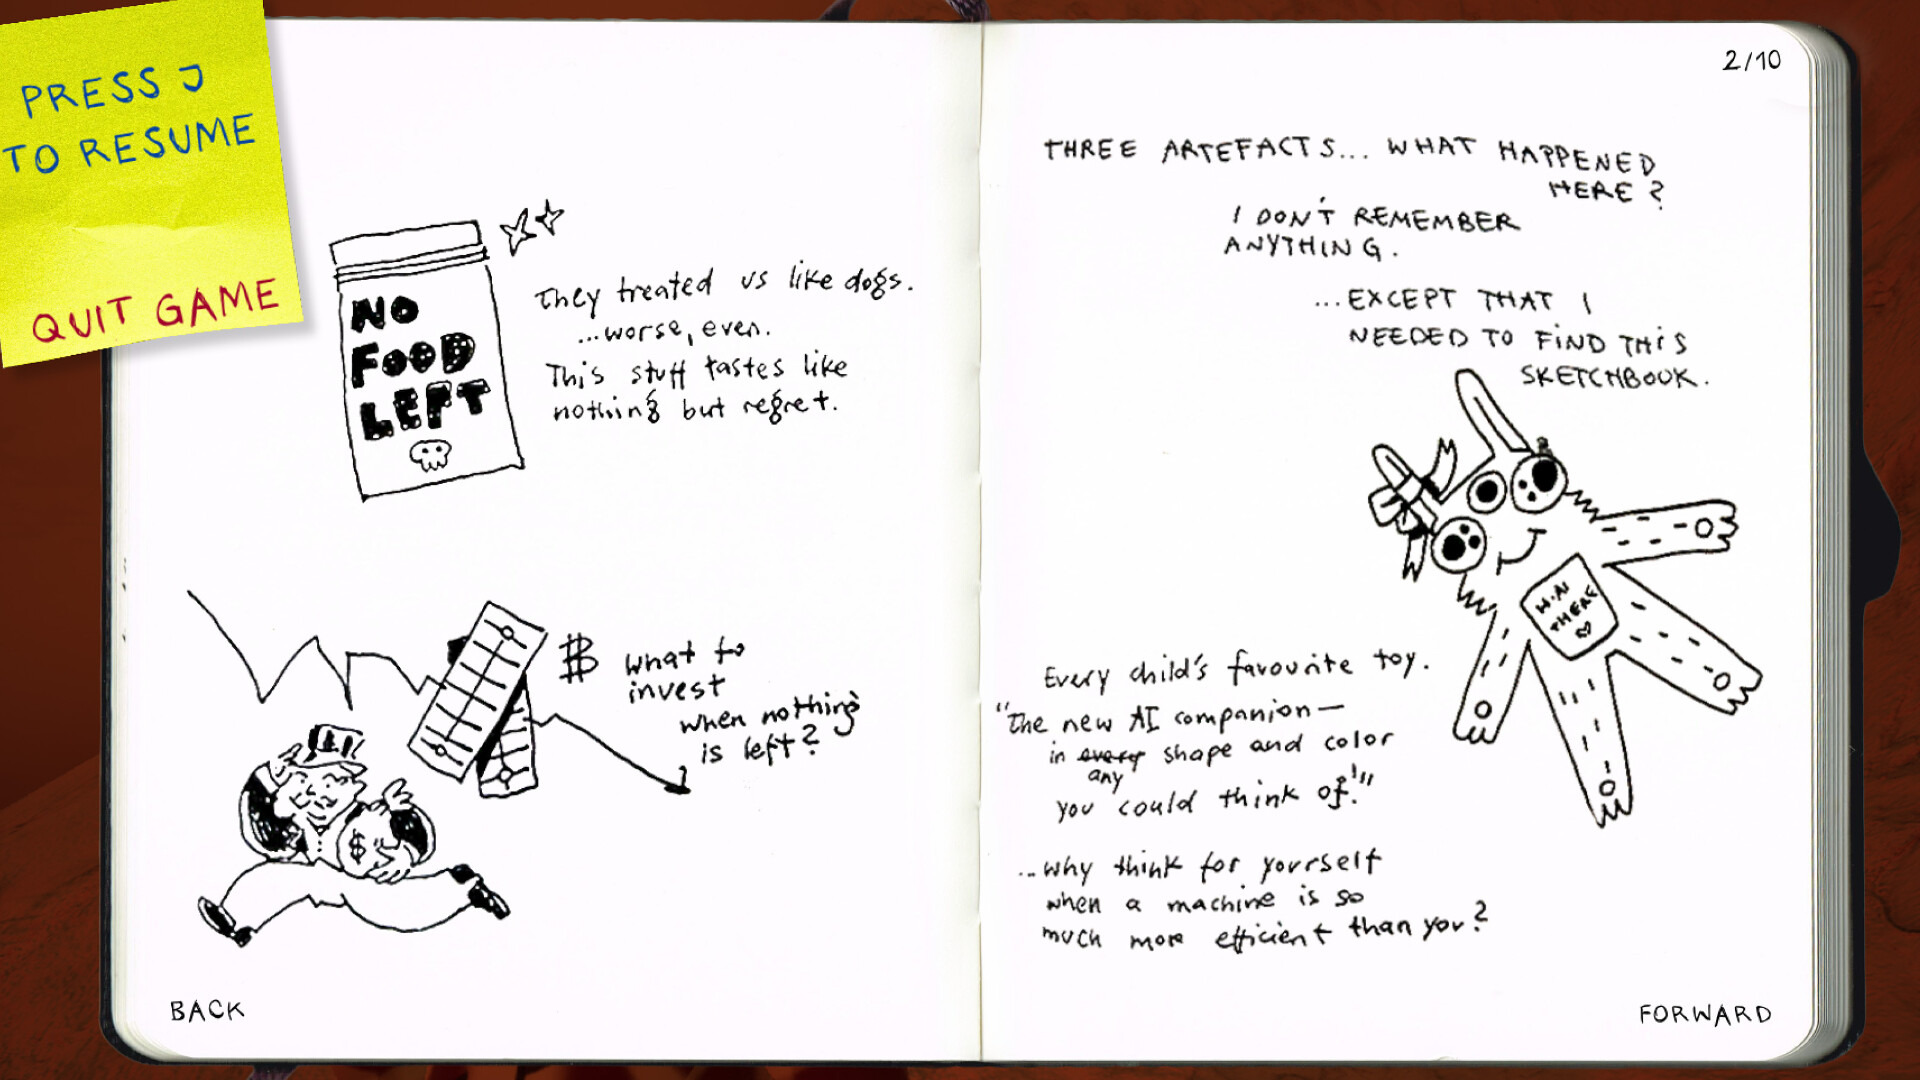 PRESS J
TO RESUME
QUIT GAME
NO
FOOD
LEFT
They treated us like dogs.
...worse, even.
This stuff tastes like
nothing but regret.
$
what to
invest
when nothing
is left?
$
BACK
2/10
THREE ARTEFACTS... WHAT HAPPENED
HERE?
I DON'T REMEMBER
ANYTHING.
...EXCEPT THAT I
NEEDED TO FIND THIS
SKETCHBOOK.
H.AI
THERE
Every child's favourite toy.
"The new AI companion—
in every shape and color
any
you could think of!"
...why think for yourself
when a machine is so
much more efficient than you?
FORWARD